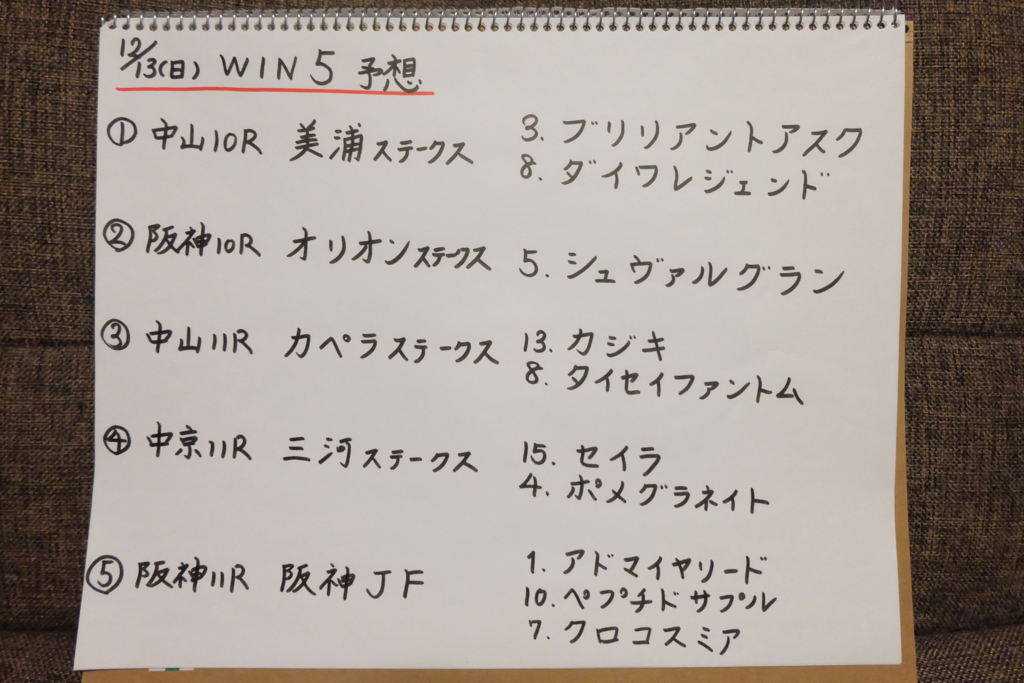 12/13(日) WIN5 予想
① 中山10R 美浦ステークス 3. ブリリアントアスク
8. ダイワレジェンド
② 阪神10R オリオンステークス 5. シュヴァルグラン
③ 中山11R カペラステークス 13. カジキ
8. タイセイファントム
④ 中京11R 三河ステークス 15. セイラ
4. ポメグラネイト
⑤ 阪神11R 阪神JF 1. アドマイヤリード
10. ペプチドサプル
7. クロコスミア